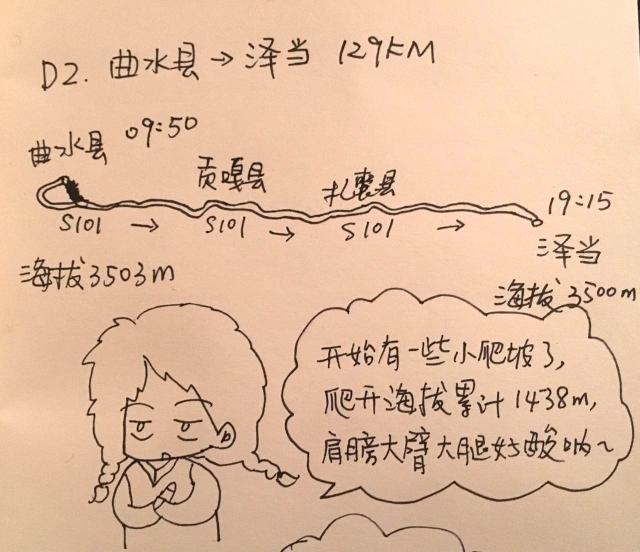 D2. 曲水县→泽当 129KM
曲水县 09:50
贡嘎县
扎囊县
19:15
S101 → S101 → S101 →
泽当
海拔3503m
海拔3500m
开始有一些小爬坡了,
爬升海拔累计1438m,
肩膀大臂大腿好酸呐~